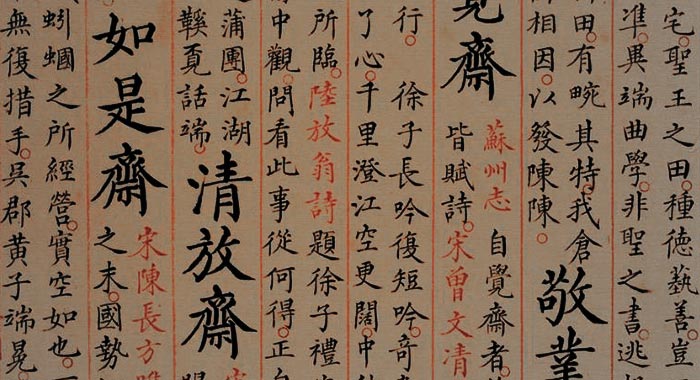 宅聖王之田種德藝善豈
準異端曲學。非聖之書逃
田。有畹其特。我倉
相因。以發陳陳。
敬業
覺齋
蘇州志自覺齋者
皆賦詩。宋曾文清
行。徐子長吟復短吟。奇
了心。千里澄江空更闊。中
所臨。陸放翁詩題徐子禮
中觀。問看此事從何得。正
蒲團。江湖
鞵覓話端。
清放齋
如是齋
宋陳長方
之末。國勢
蚓蟈之所經營。實空如也。
無復措手。吳郡黃子端晃。